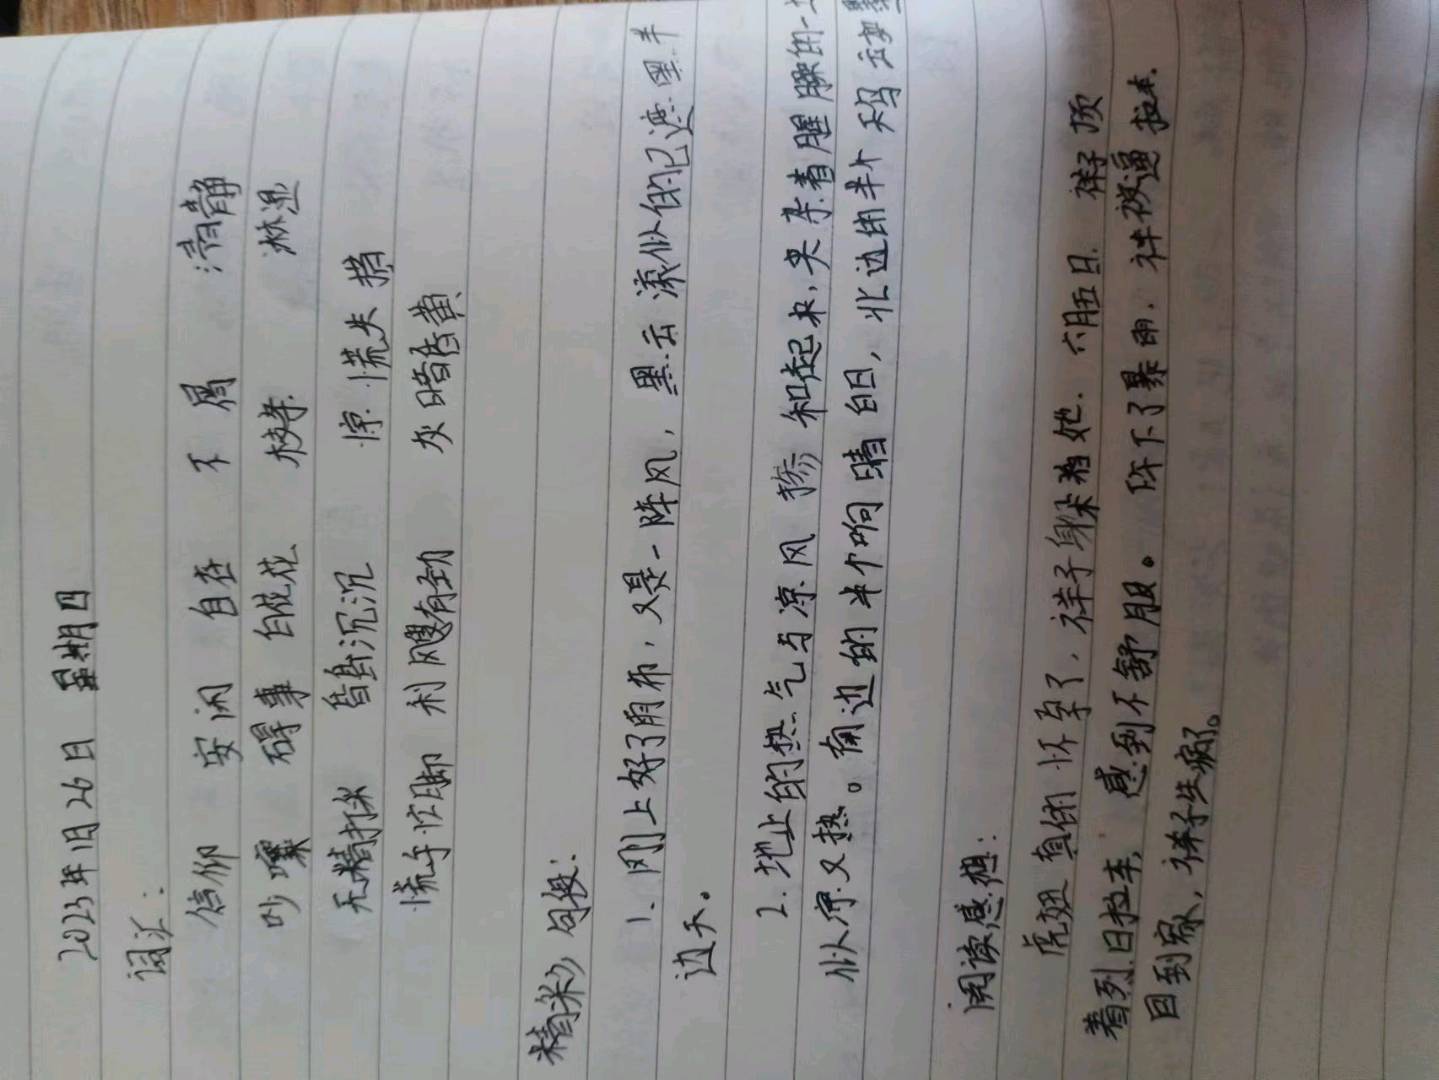 2023年1月26日 星期四
词汇:
信仰 安闲 自在 不屑 清静
吵嚷 碍事 白花花 棱 淋湿
无精打采 昏昏沉沉 惊慌失措
慌手忙脚 利飕有劲 灰暗昏黄
精彩句段:
1、刚上好了雨布,又是一阵风,黑云滚似的已遮黑半
边天。
2、地上的热气与凉风掺和起来,夹杂着腥臊的
似凉又热。南边的半个响晴白日,北边的半个天乌云如墨
阅读感想:
虎妞真的怀孕了,祥子躲着她.六月十五日.祥子顶
着烈日拉车,感到不舒服。陈下了暴雨,祥子被逼拉车.
回到家,祥子生病了。